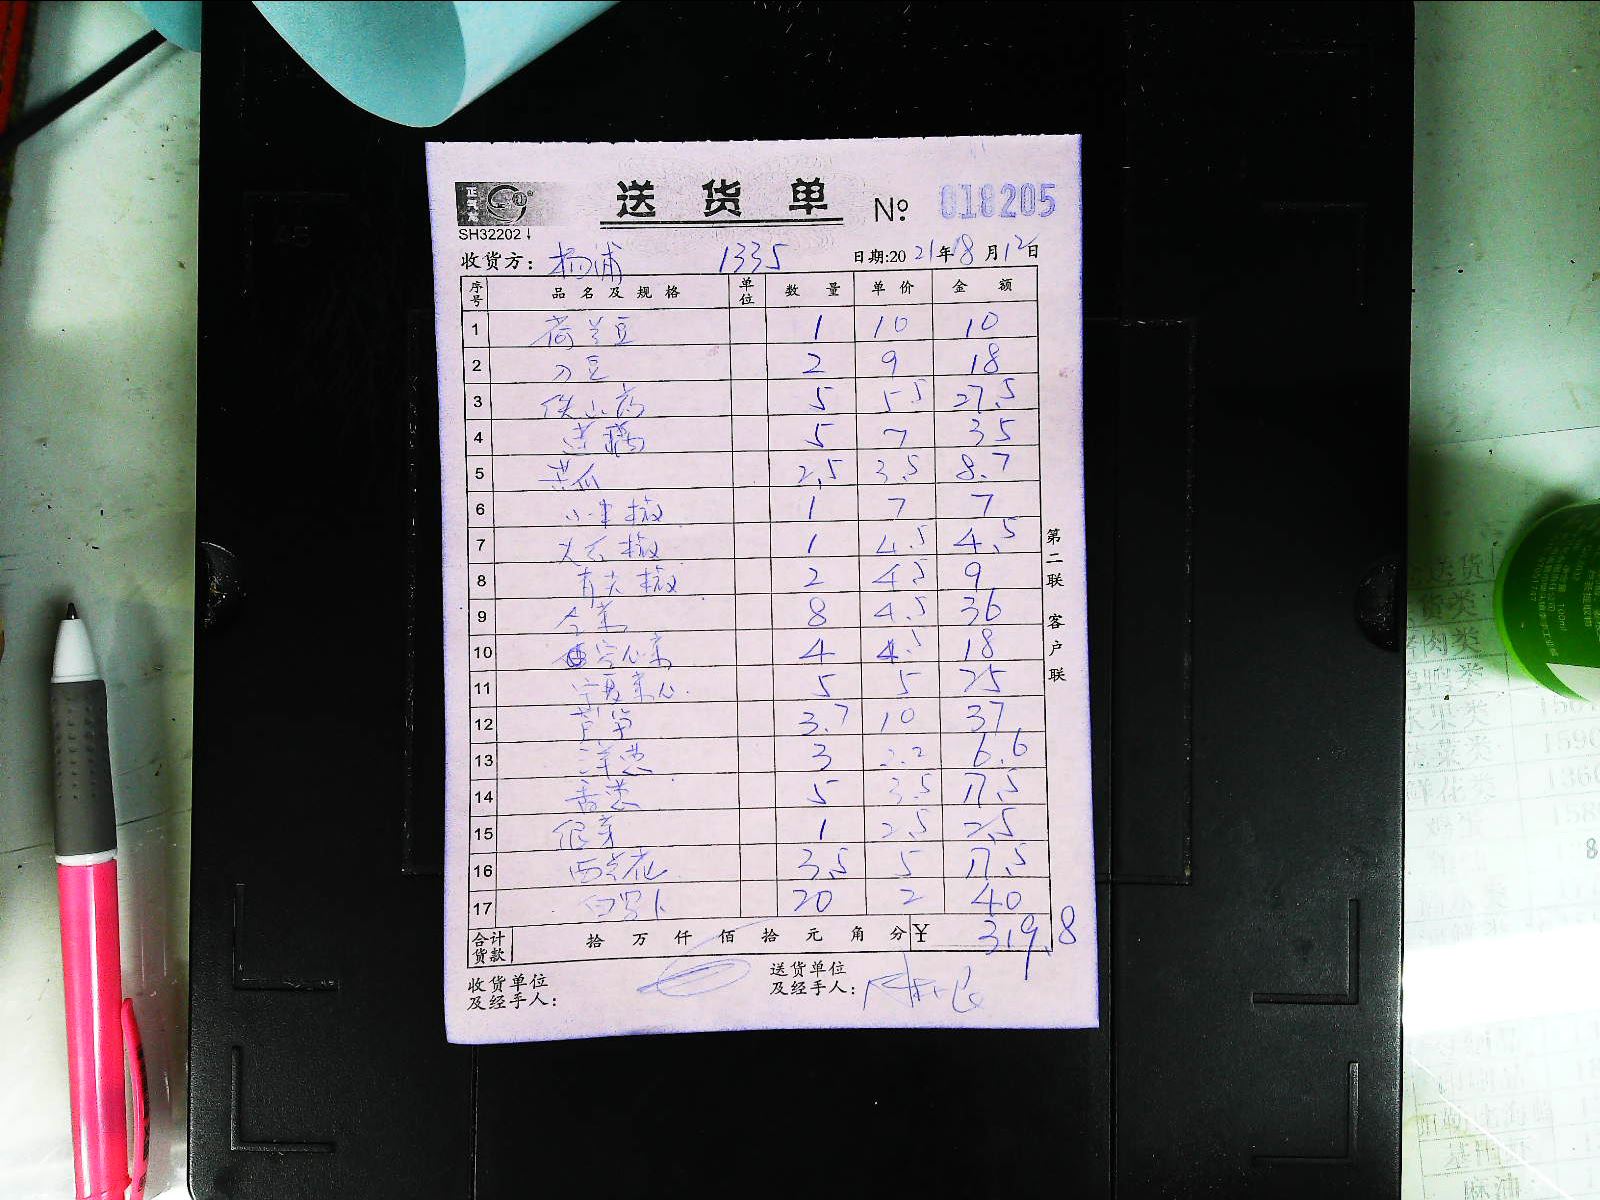 送货单 № 018205
SH32202
收货方: 杨浦 1335 日期:2021年8月12日
序号 品名及规格 单位 数量 单价 金额
1 荷兰豆 1 10 10
2 刀豆 2 9 18
3 铁山药 5 5.5 27.5
4 莲藕 5 7 35
5 黄瓜 2.5 3.5 8.7
6 小米椒 1 7 7
7 大红椒 1 4.5 4.5
8 青尖椒 2 4.5 9
9 8 4.5 36
10 4 4.5 18
11 宁夏菜心 5 5 25
12 芦笋 3.7 10 37
13 洋葱 3 2.2 6.6
14 香葱 5 3.5 17.5
15 银芽 1 2.5 2.5
16 西兰花 3.5 5 17.5
17 白罗卜 20 2 40
合计货款 拾万仟佰拾元角分 ¥ 319.8
收货单位及经手人:
送货单位及经手人:
第二联 客户联